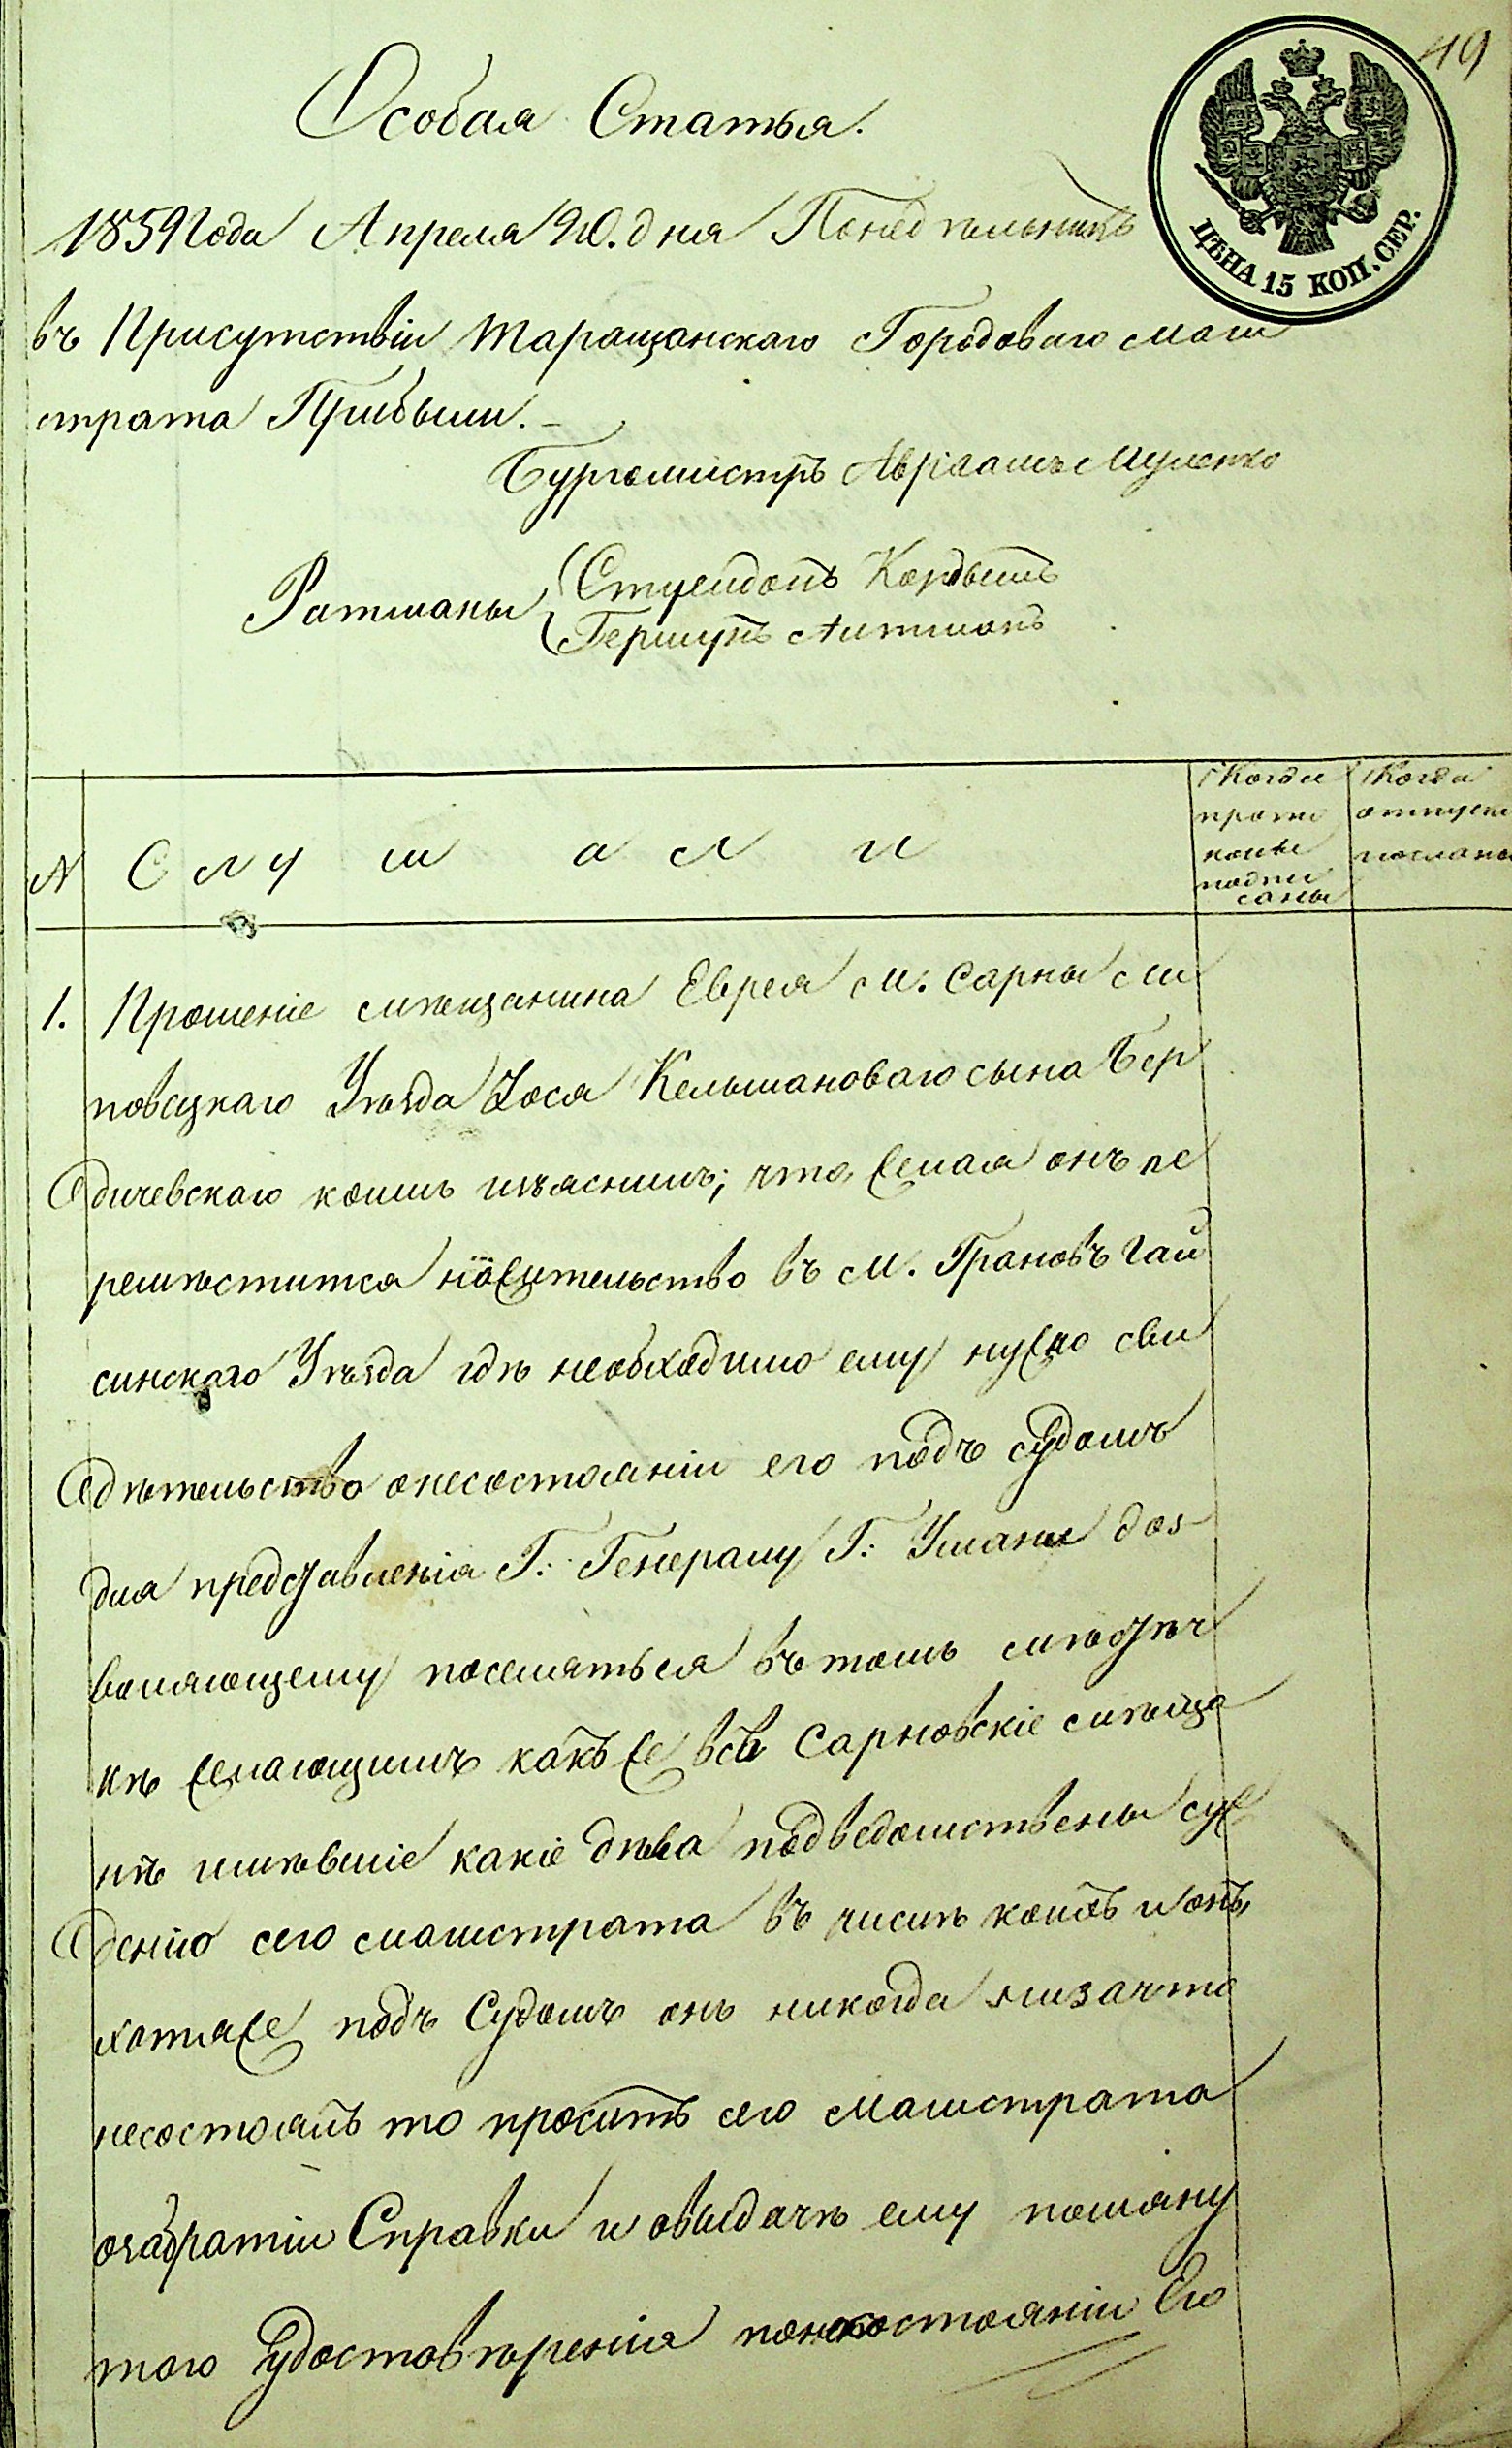 49
Особая Статья.
ЦѢНА 15 КОП. СЕР.
1859 Года Апреля 20. дня Понедѣльникъ
въ Присутствіи Таращанскаго Городоваго Маги
страта Прибыли.
Бургомистръ Авраамъ
Ратманы
Гершунъ Литманъ
№ Слушали
Когда прото колы подпи саны
Когда отпуски посланы
1. Прошеніе мѣщанина Еврея м. Сарны Ли
повецкаго Уѣзда Іося Кельмановаго сына Бер
дичевскаго коимъ изъяснилъ; что желая онъ пе
реместится на жительство въ м. Грановъ Гай
синскаго Уѣзда гдѣ необходимо ему нужно сви
дѣтельство онесостояніи его подъ судомъ
для представленія Г: Генералу Г: Умани доз
воляющему поселяться въ томъ мѣстеч
кѣ желающимъ какъ же всѣ Сарновскіе мѣща
нѣ имѣвшіе какіе дѣла подведомствены суж
денію сего магистрата въ числѣ коихъ и онъ,
хотя же подъ Судомъ онъ никогда низачто
несостоялъ то проситъ сего Магистрата
Справки и овыдачѣ ему помяну
того Удостовѣренія Его